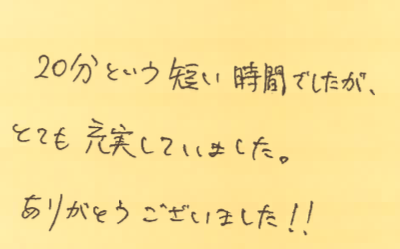 20分という短い時間でしたが、
とても充実していました。
ありがとうございました!!